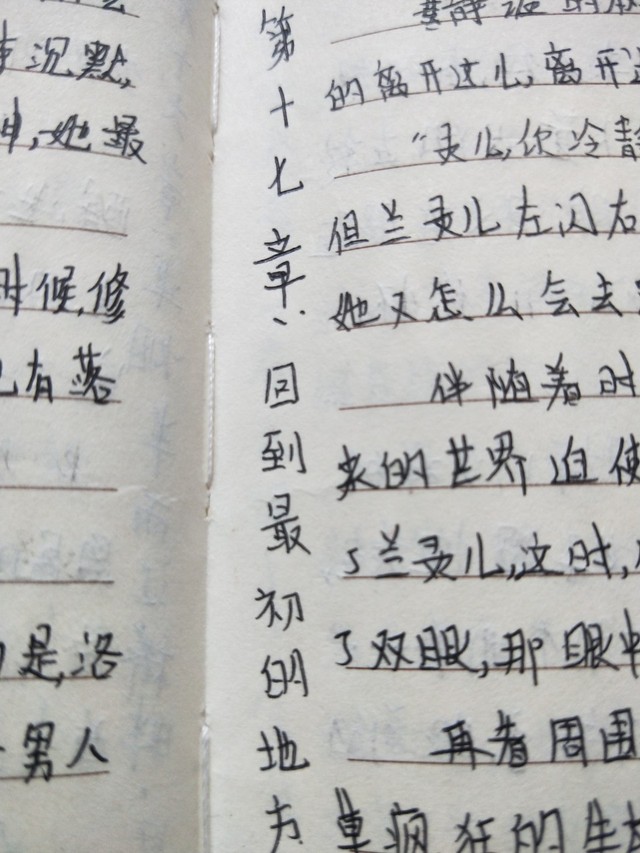 沉默,
她最
时候,修
有落
是,洛
男人
第十七章:回到最初的地方
的离开这儿,离开
"灵儿,你冷静
但兰灵儿左闪右
她又怎么会去
伴随着时
来的世界迫使
了兰灵儿,这时,
了双眼,那眼中
再看周围
疯狂的生